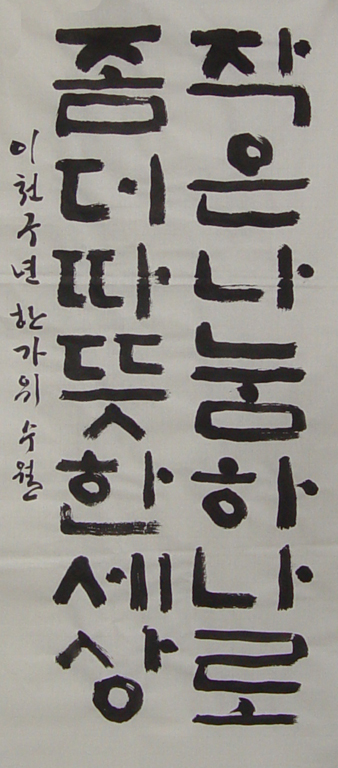 작은나눔하나로
좀더따뜻한세상
이천구년 한가위 수월